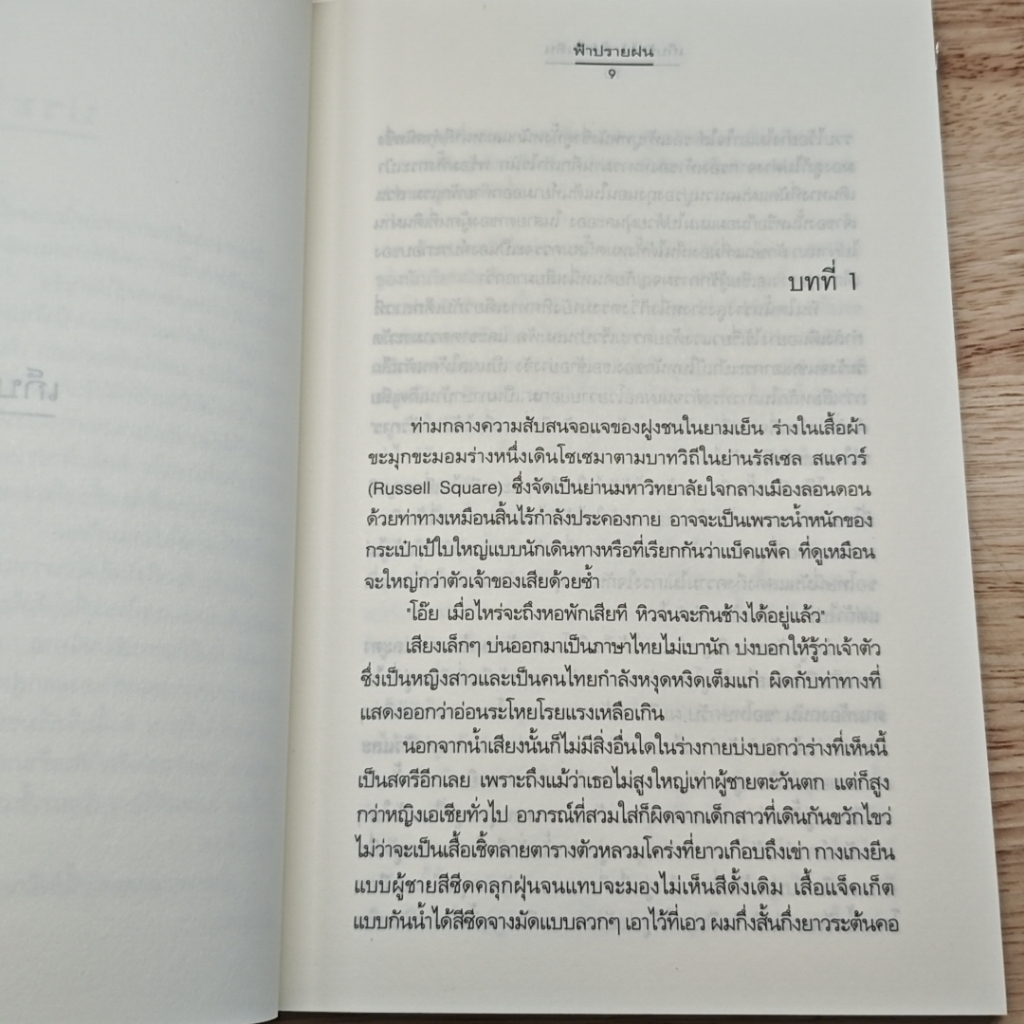 ฟ้าปรายฝน
9
บทที่ 1
ท่ามกลางความสับสนจอแจของฝูงชนในยามเย็น ร่างในเสื้อผ้า
ขะมุกขะมอมร่างหนึ่งเดินโซเซมาตามบาทวิถีในย่านรัสเซล สแควร์
(Russell Square) ซึ่งจัดเป็นย่านมหาวิทยาลัยใจกลางเมืองลอนดอน
ด้วยท่าทางเหมือนสิ้นไร้กำลังประคองกาย อาจจะเป็นเพราะน้ำหนักของ
กระเป๋าเป้ใบใหญ่แบบนักเดินทางหรือที่เรียกกันว่าแบ็คแพ็ค ที่ดูเหมือน
จะใหญ่กว่าตัวเจ้าของเสียด้วยซ้ำ
"โอ๊ย เมื่อไหร่จะถึงหอพักเสียที หิวจนจะกินช้างได้อยู่แล้ว"
เสียงเล็กๆ บ่นออกมาเป็นภาษาไทยไม่เบานัก บ่งบอกให้รู้ว่าเจ้าตัว
ซึ่งเป็นหญิงสาวและเป็นคนไทยกำลังหงุดหงิดเต็มแก่ ผิดกับท่าทางที่
แสดงออกว่าอ่อนระโหยโรยแรงเหลือเกิน
นอกจากน้ำเสียงนั้นก็ไม่มีสิ่งอื่นใดในร่างกายบ่งบอกว่าร่างที่เห็นนี้
เป็นสตรีอีกเลย เพราะถึงแม้ว่าเธอไม่สูงใหญ่เท่าผู้ชายตะวันตก แต่ก็สูง
กว่าหญิงเอเชียทั่วไป อาภรณ์ที่สวมใส่ก็ผิดจากเด็กสาวที่เดินกันขวักไขว่
ไม่ว่าจะเป็นเสื้อเชิ้ตลายตารางตัวหลวมโคร่งที่ยาวเกือบถึงเข่า กางเกงยีน
แบบผู้ชายสีซีดคลุกฝุ่นจนแทบจะมองไม่เห็นสีดั้งเดิม เสื้อแจ็คเก็ต
แบบกันน้ำได้สีซีดจางมัดแบบลวกๆ เอาไว้ที่เอว ผมกึ่งสั้นกึ่งยาวระต้นคอ